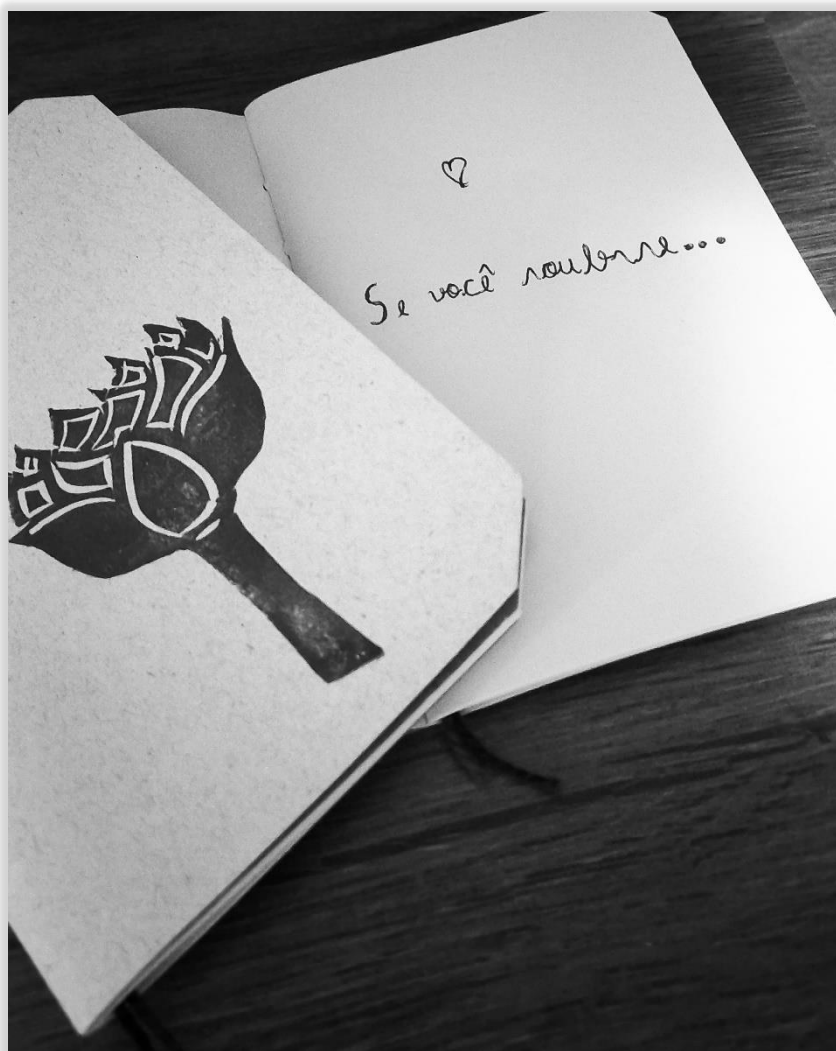 Se você soubesse...